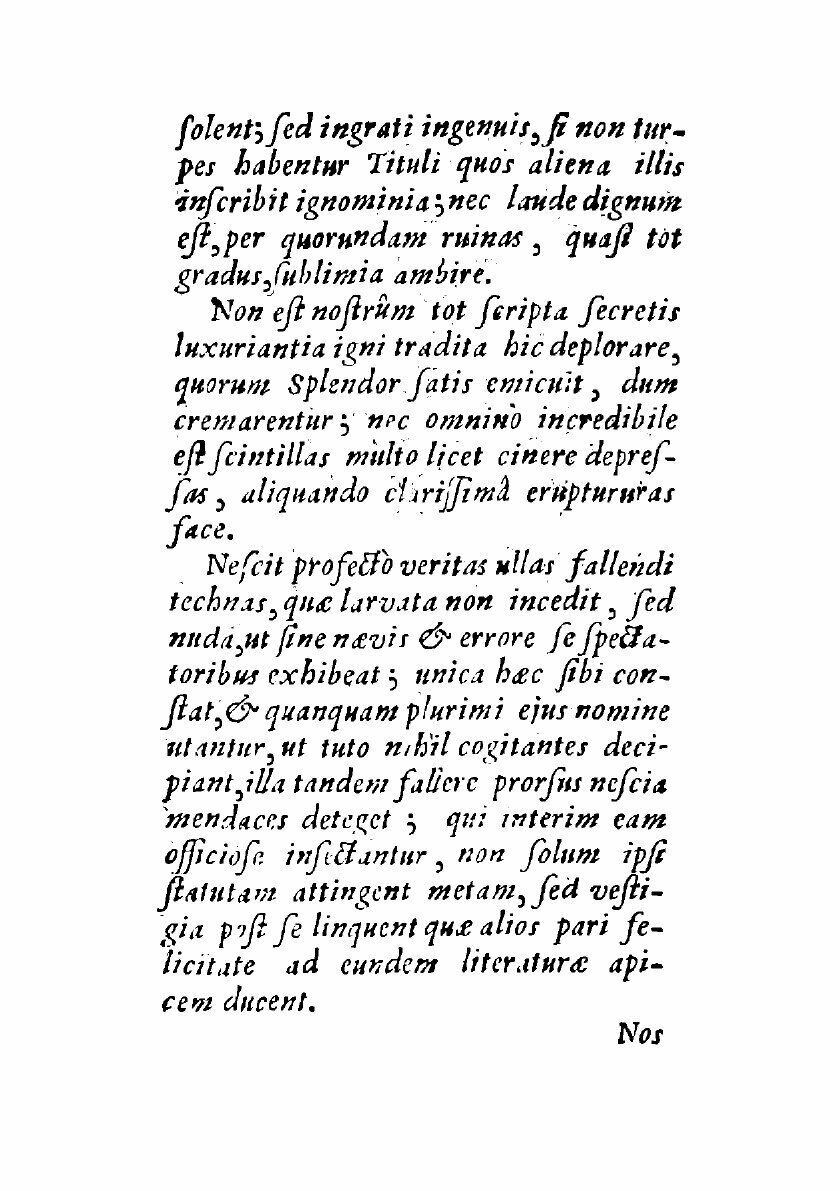 ſolent; ſed ingrati ingenuis, ſi non tur-
pes habentur Tituli quos aliena illis
inſcribit ignominia; nec laude dignum
eſt, per quorundam ruinas, quaſi tot
gradus, ſublimia ambire.
Non eſt noſtrûm tot ſcripta ſecretis
luxuriantia igni tradita hic deplorare,
quorum Splendor ſatis emicuit, dum
cremarentur; nec omninò incredibile
eſt ſcintillas multo licet cinere depreſ-
ſas, aliquando clariſſimâ eruptururas
face.
Neſcit profectò veritas ullas fallendi
technas, quæ larvata non incedit, ſed
nuda, ut ſine nævis & errore ſe ſpecta-
toribus exhibeat; unica hæc ſibi con-
ſtat, & quanquam plurimi ejus nomine
utantur, ut tuto nihil cogitantes deci-
piant, illa tandem fallere prorſus neſcia
mendaces deteget; qui interim eam
officioſe inſectantur, non ſolum ipſi
ſtatutam attingent metam, ſed veſti-
gia poſt ſe linquent quæ alios pari fe-
licitate ad eundem literaturæ api-
cem ducent.
Nos